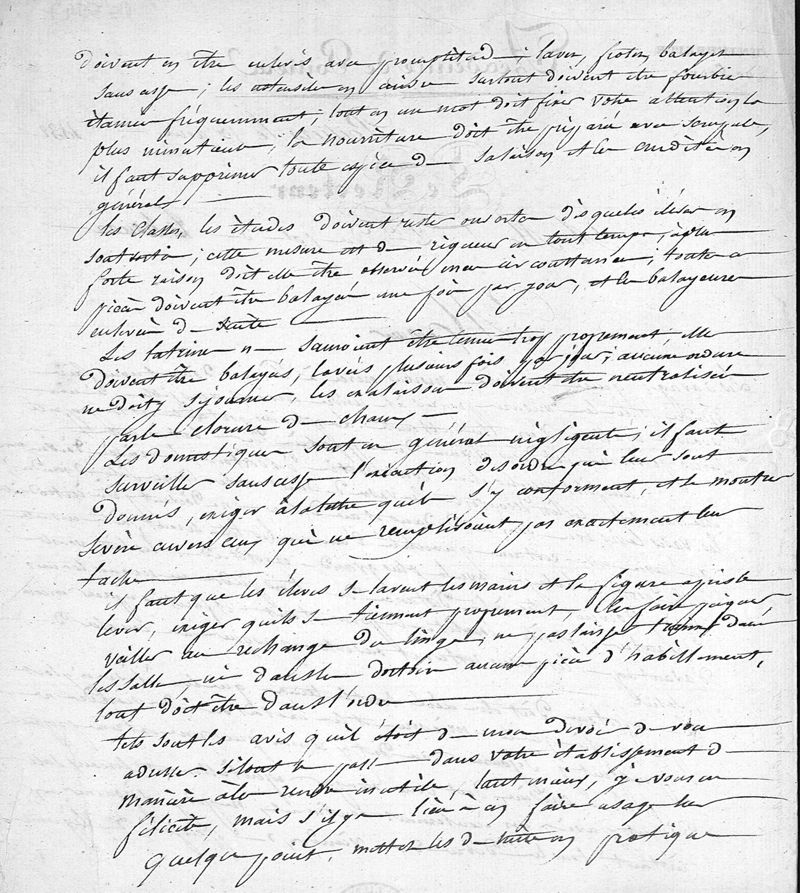 doivent en être enlevés avec promptitude; laver, froter, balayer
sans cesse; les ustensiles en cuivre surtout doivent être fourbis
étamés fréquemment; tout en un mot doit fixer votre attention la
plus minutieuse; la nourriture doit être préparée avec scrupule,
il faut supprimer toute espèce de salaison et les crudités en
général
les classes, les études doivent rester ouvertes dès que les élèves en
sont sortis; cette mesure est de rigueur en tout temps, à plus
forte raison doit elle être observée en ces circonstances; toutes ces
pièces doivent être balayées une fois par jour, et les balayures
enlevées de suite
Les latrines ne sauroient être tenues trop proprement, elles
doivent être balayées, lavées plusieurs fois par jour; aucune ordure
ne doit y séjourner, les exhalaisons doivent être neutralisées
par le clorure de chaux
Les domestiques sont en général négligents; il faut
surveiller sans cesse l'exécution des ordres qui leur sont
donnés, exiger à la lettre qu'ils s'y conforment, et se montrer
sévère envers ceux qui ne rempliroient pas exactement leur
tache
il faut que les élèves se lavent les mains et la figure après le
lever, exiger qu'ils se tiennent proprement, les faire peigner
veiller au rechange du linge, ne pas laisser dans
les salles, ni dans les dortoirs aucune pièce d'habillement,
tout doit être dans l'ordre
tels sont les avis qu'il étoit de mon devoir de vous
adresser. si tout se passe dans votre établissement de
manière à les rendre inutiles, tant mieux, je vous en
félicite, mais s'il y a lieu à en faire usage sur
quelque point, mettez les de suite en pratique